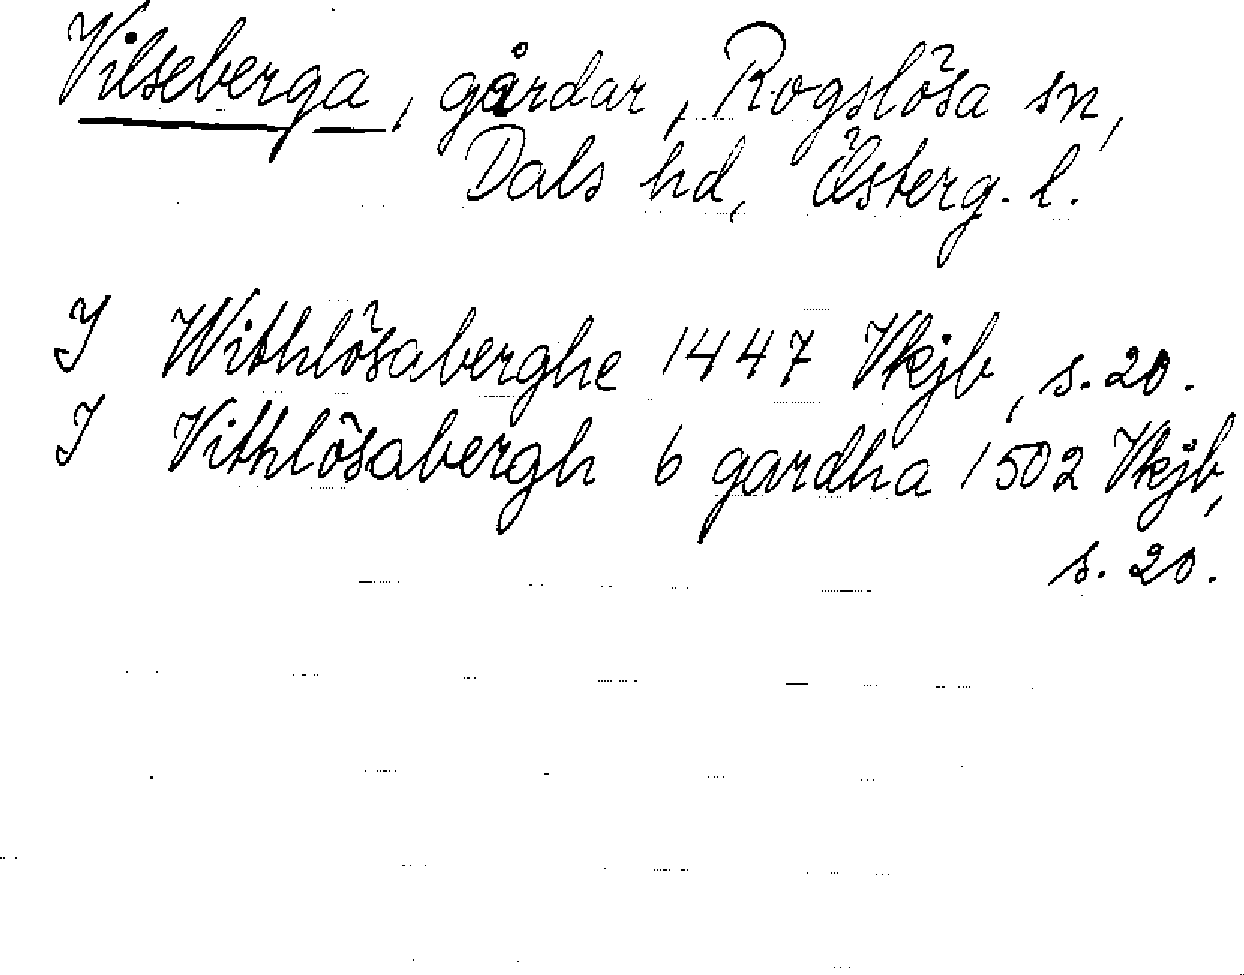 Vilseberga, gårdar, Rogslösa sn,
Dals hd, Österg. l.
I Withlösaberghe 1447 Vkjb, s. 20.
I Vithlösabergh 6 gardha 1502 Vkjb,
s. 20.